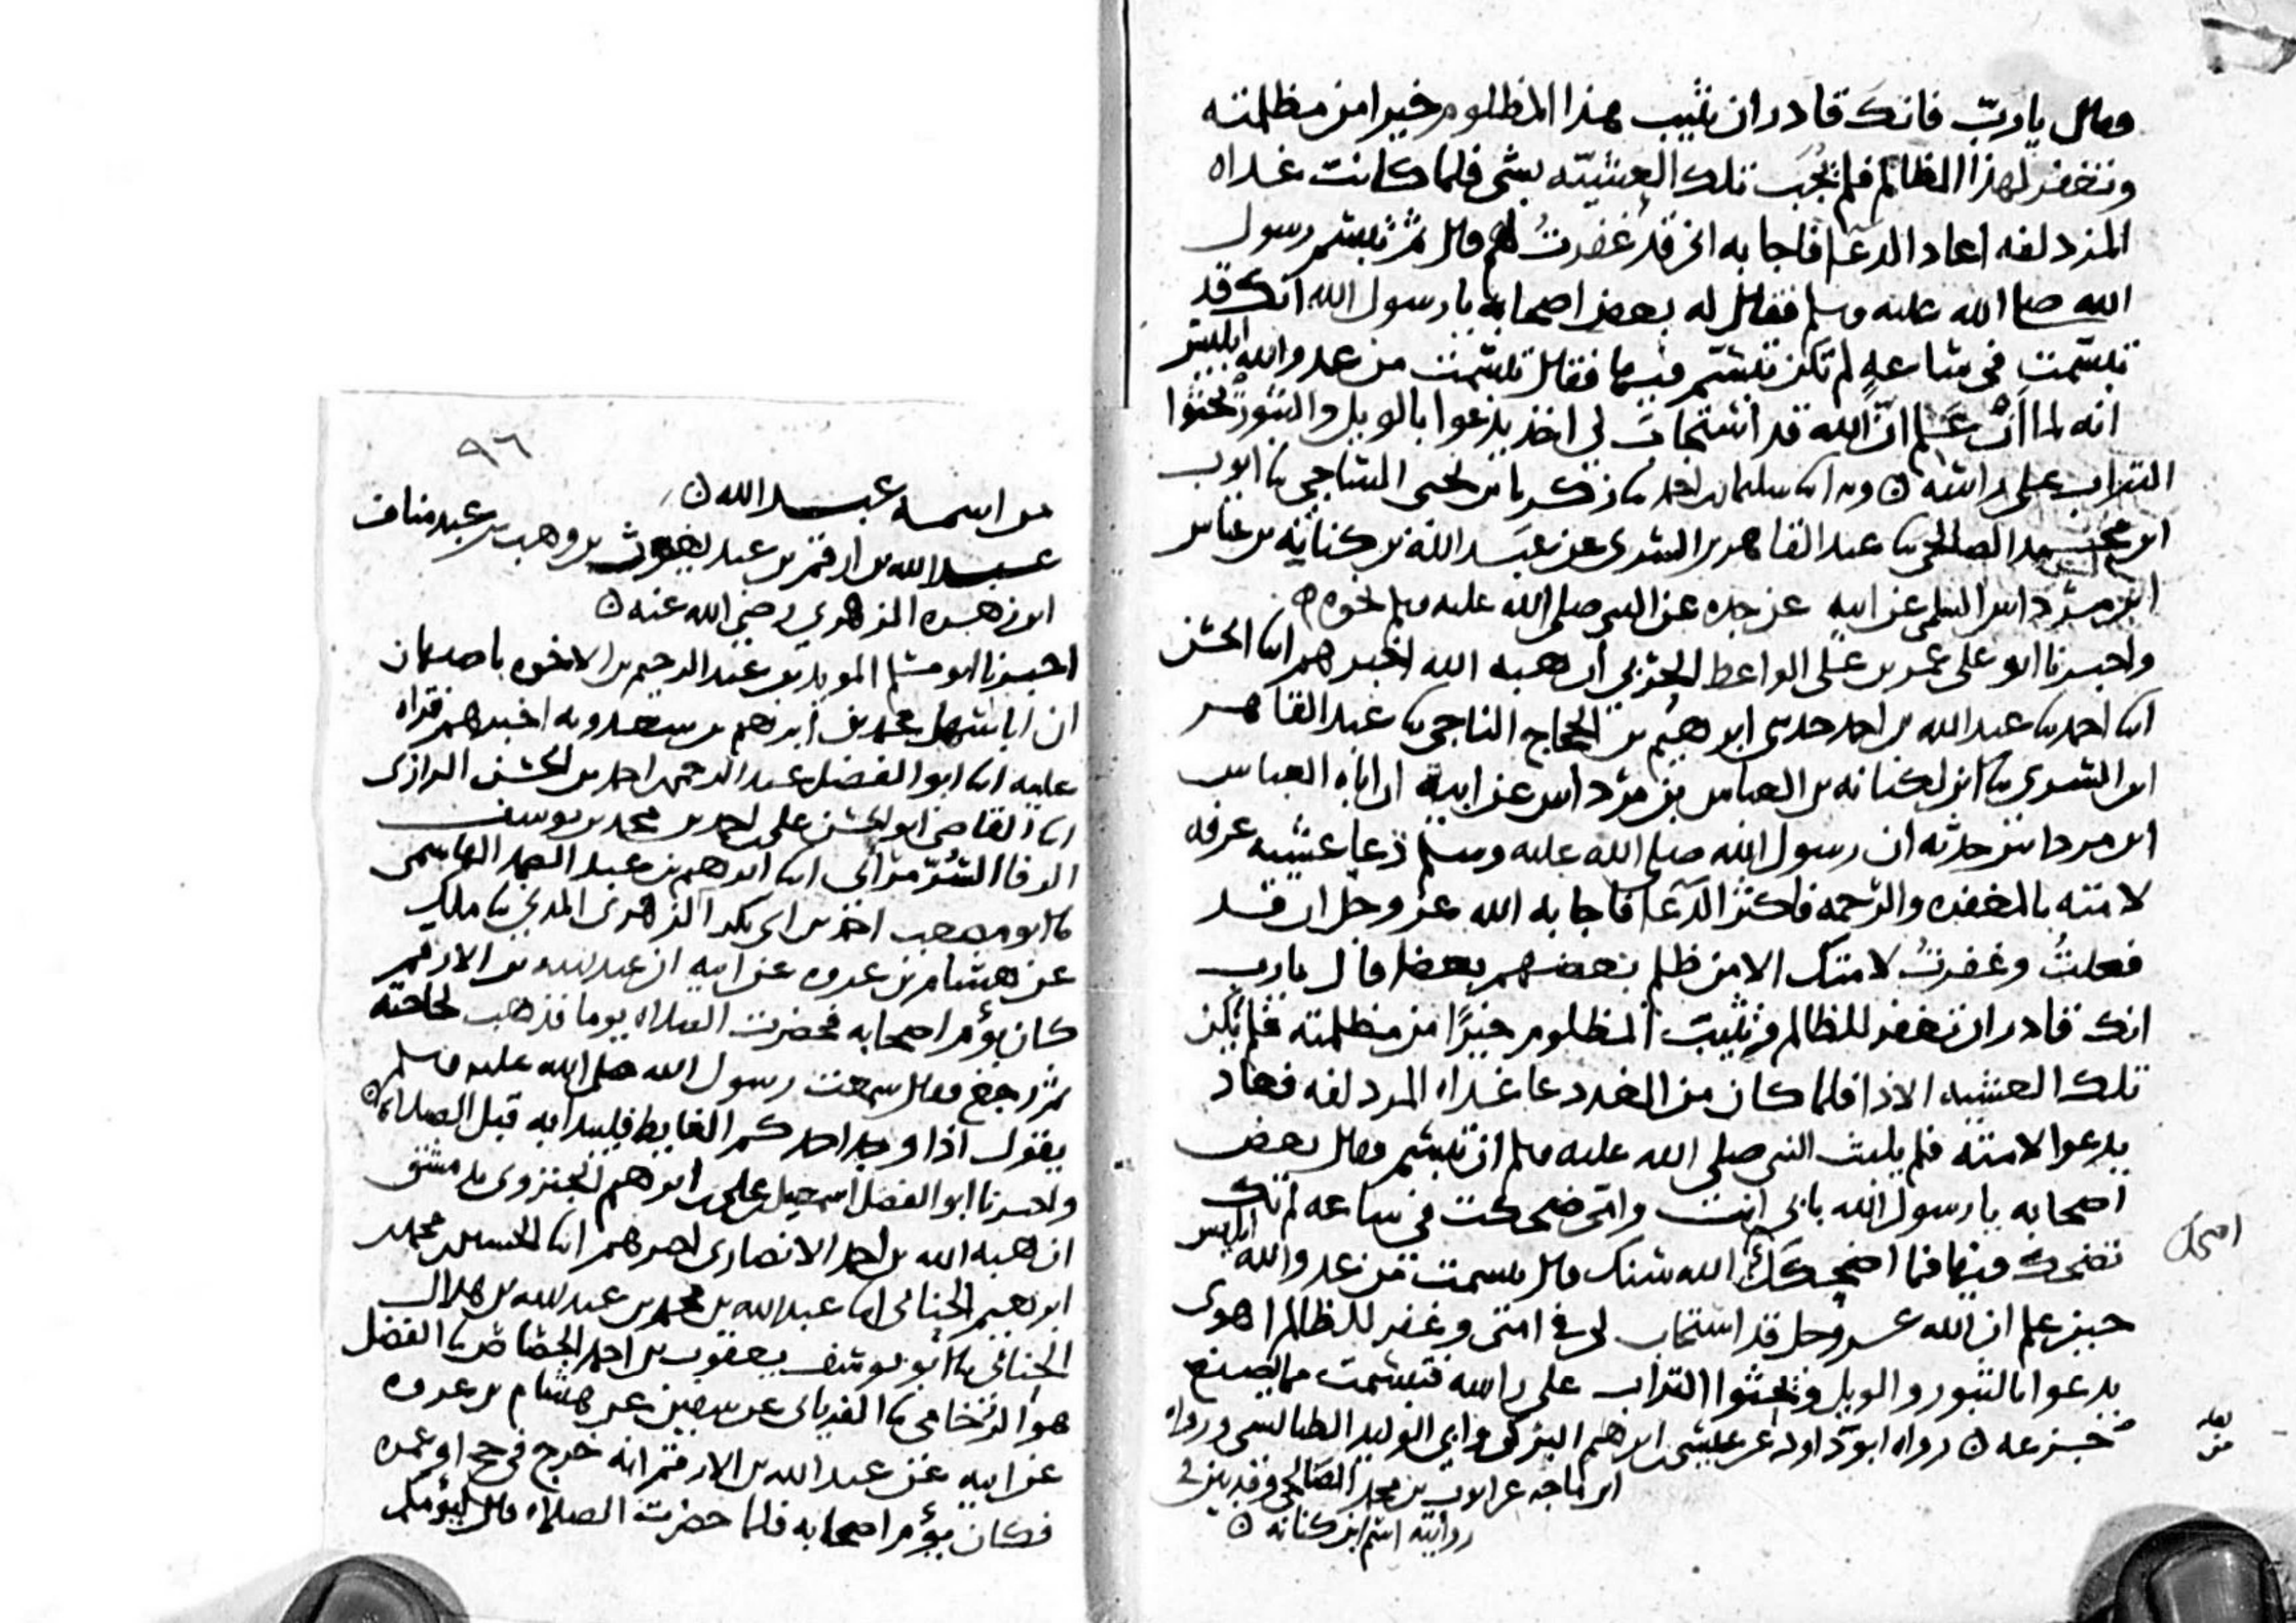 وقال يا رب فانك قادر ان تثيب هذا المظلوم خيرا من مظلمته
وتغفر لهذا الظالم فلم يجب تلك العشية بشي فلما كانت غداه
المزدلفه اعاد الدعا فاجابه اني قد غفرت لهم قال ثم تبسم رسول
الله صلى الله عليه وسلم فقال له بعض اصحابه يا رسول الله انك قد
تبسمت في ساعه لم تكن تبسم فيها فقال تبسمت من عدو الله ابليس
انه لما علم ان الله قد استجاب لي اخذ يدعوا بالويل والثبور ويحثوا
التراب على راسه ه وبه ابنا سليمان بن احمد نا زكريا بن يحيى الساجي نا ايوب
ابن محمد الصالحي نا عبد القاهر بن السري عن عبد الله بن كنانه بن عباس
ابن مرداس السلمي عن ابيه عن جده عن النبي صلى الله عليه وسلم نحوه
واخبرنا ابو علي عمر بن علي الواعظ الحربي ان هبه الله اخبرهم ابنا الحسن
ابنا احمد نا عبد الله بن احمد حدثني ابرهيم بن الحجاج الناجي نا عبد القاهر
ابن السري نا ابن لكنانه بن العباس بن مرداس عن ابيه ان اباه العباس
ابن مرداس حدثه ان رسول الله صلى الله عليه وسلم دعا عشيه عرفه
لامته بالمغفره والرحمه فاكثر الدعا فاجابه الله عز وجل ان قد
فعلت وغفرت لامتك الا من ظلم بعضهم بعضا قال يا رب
انك قادر ان تغفر للظالم وتثيب المظلوم خيرا من مظلمته فلم يكن
تلك العشيه الا ذا فلما كان من الغد دعا غداه المزدلفه فعاد
يدعوا لامته فلم يلبث النبي صلى الله عليه وسلم ان تبسم فقال بعض
اصحابه يا رسول الله بابي انت وامي ضحكت في ساعه لم تك
تضحك فيها فما اضحكك اضحك الله سنك قال تبسمت من عدو الله ابليس
حين علم ان الله عز وجل قد استجاب لي في امتي وغفر للظالم اهوى
يدعوا بالثبور والويل ويحثوا التراب على راسه فتبسمت مما يصنع
جزعه ه رواه ابو داود عن عيسى بن ابرهيم البركي وابي الوليد الطيالسي ورواه
ابن ماجه عن ايوب بن محمد الصالحي
روايته اسم ابن كنانه ه
اضحك
لعله
من
٩٦
من اسمه عبد الله ه
عبد الله بن ارقم بن عبد يغوث بن وهب بن عبد مناف
ابن زهره الزهري رضي الله عنه ه
اخبرنا ابو مسلم المويد بن عبد الرحيم بن الاخوه باصبهان
ان ابا سهل محمد بن ابرهيم بن سعدويه اخبرهم قراه
عليه ابنا ابو الفضل عبد الرحمن بن احمد بن الحسن الرازي
ابنا القاضي ابو الحسن علي بن احمد بن محمد بن يوسف
الرفا السرمراي ابنا ابرهيم بن عبد الصمد الهاشمي
نا ابو مصعب احمد بن ابي بكر الزهري المدني نا مالك
عن هشام بن عروه عن ابيه ان عبد الله بن الارقم
كان يؤم اصحابه فحضرت الصلاه يوما فذهب لحاجته
ثم رجع فقال سمعت رسول الله صلى الله عليه وسلم
يقول اذا وجد احدكم الغايط فليبدا به قبل الصلاه ه
واخبرنا ابو الفضل اسمعيل بن علي بن ابرهيم الجنزوي بدمشق
ان هبه الله بن احمد الانصاري اخبرهم ابنا الحسين بن محمد
ابن ابرهيم الحنائي ابنا عبد الله بن محمد بن عبد الله بن هلال
الحنائي نا ابو يوسف يعقوب بن احمد الجصاص نا الفضل
هو الرخامي نا الفريابي عن سفين عن هشام بن عروه
عن ابيه عن عبد الله بن الارقم انه خرج في حج او عمره
فكان يؤم اصحابه فلما حضرت الصلاه قال ليؤمكم